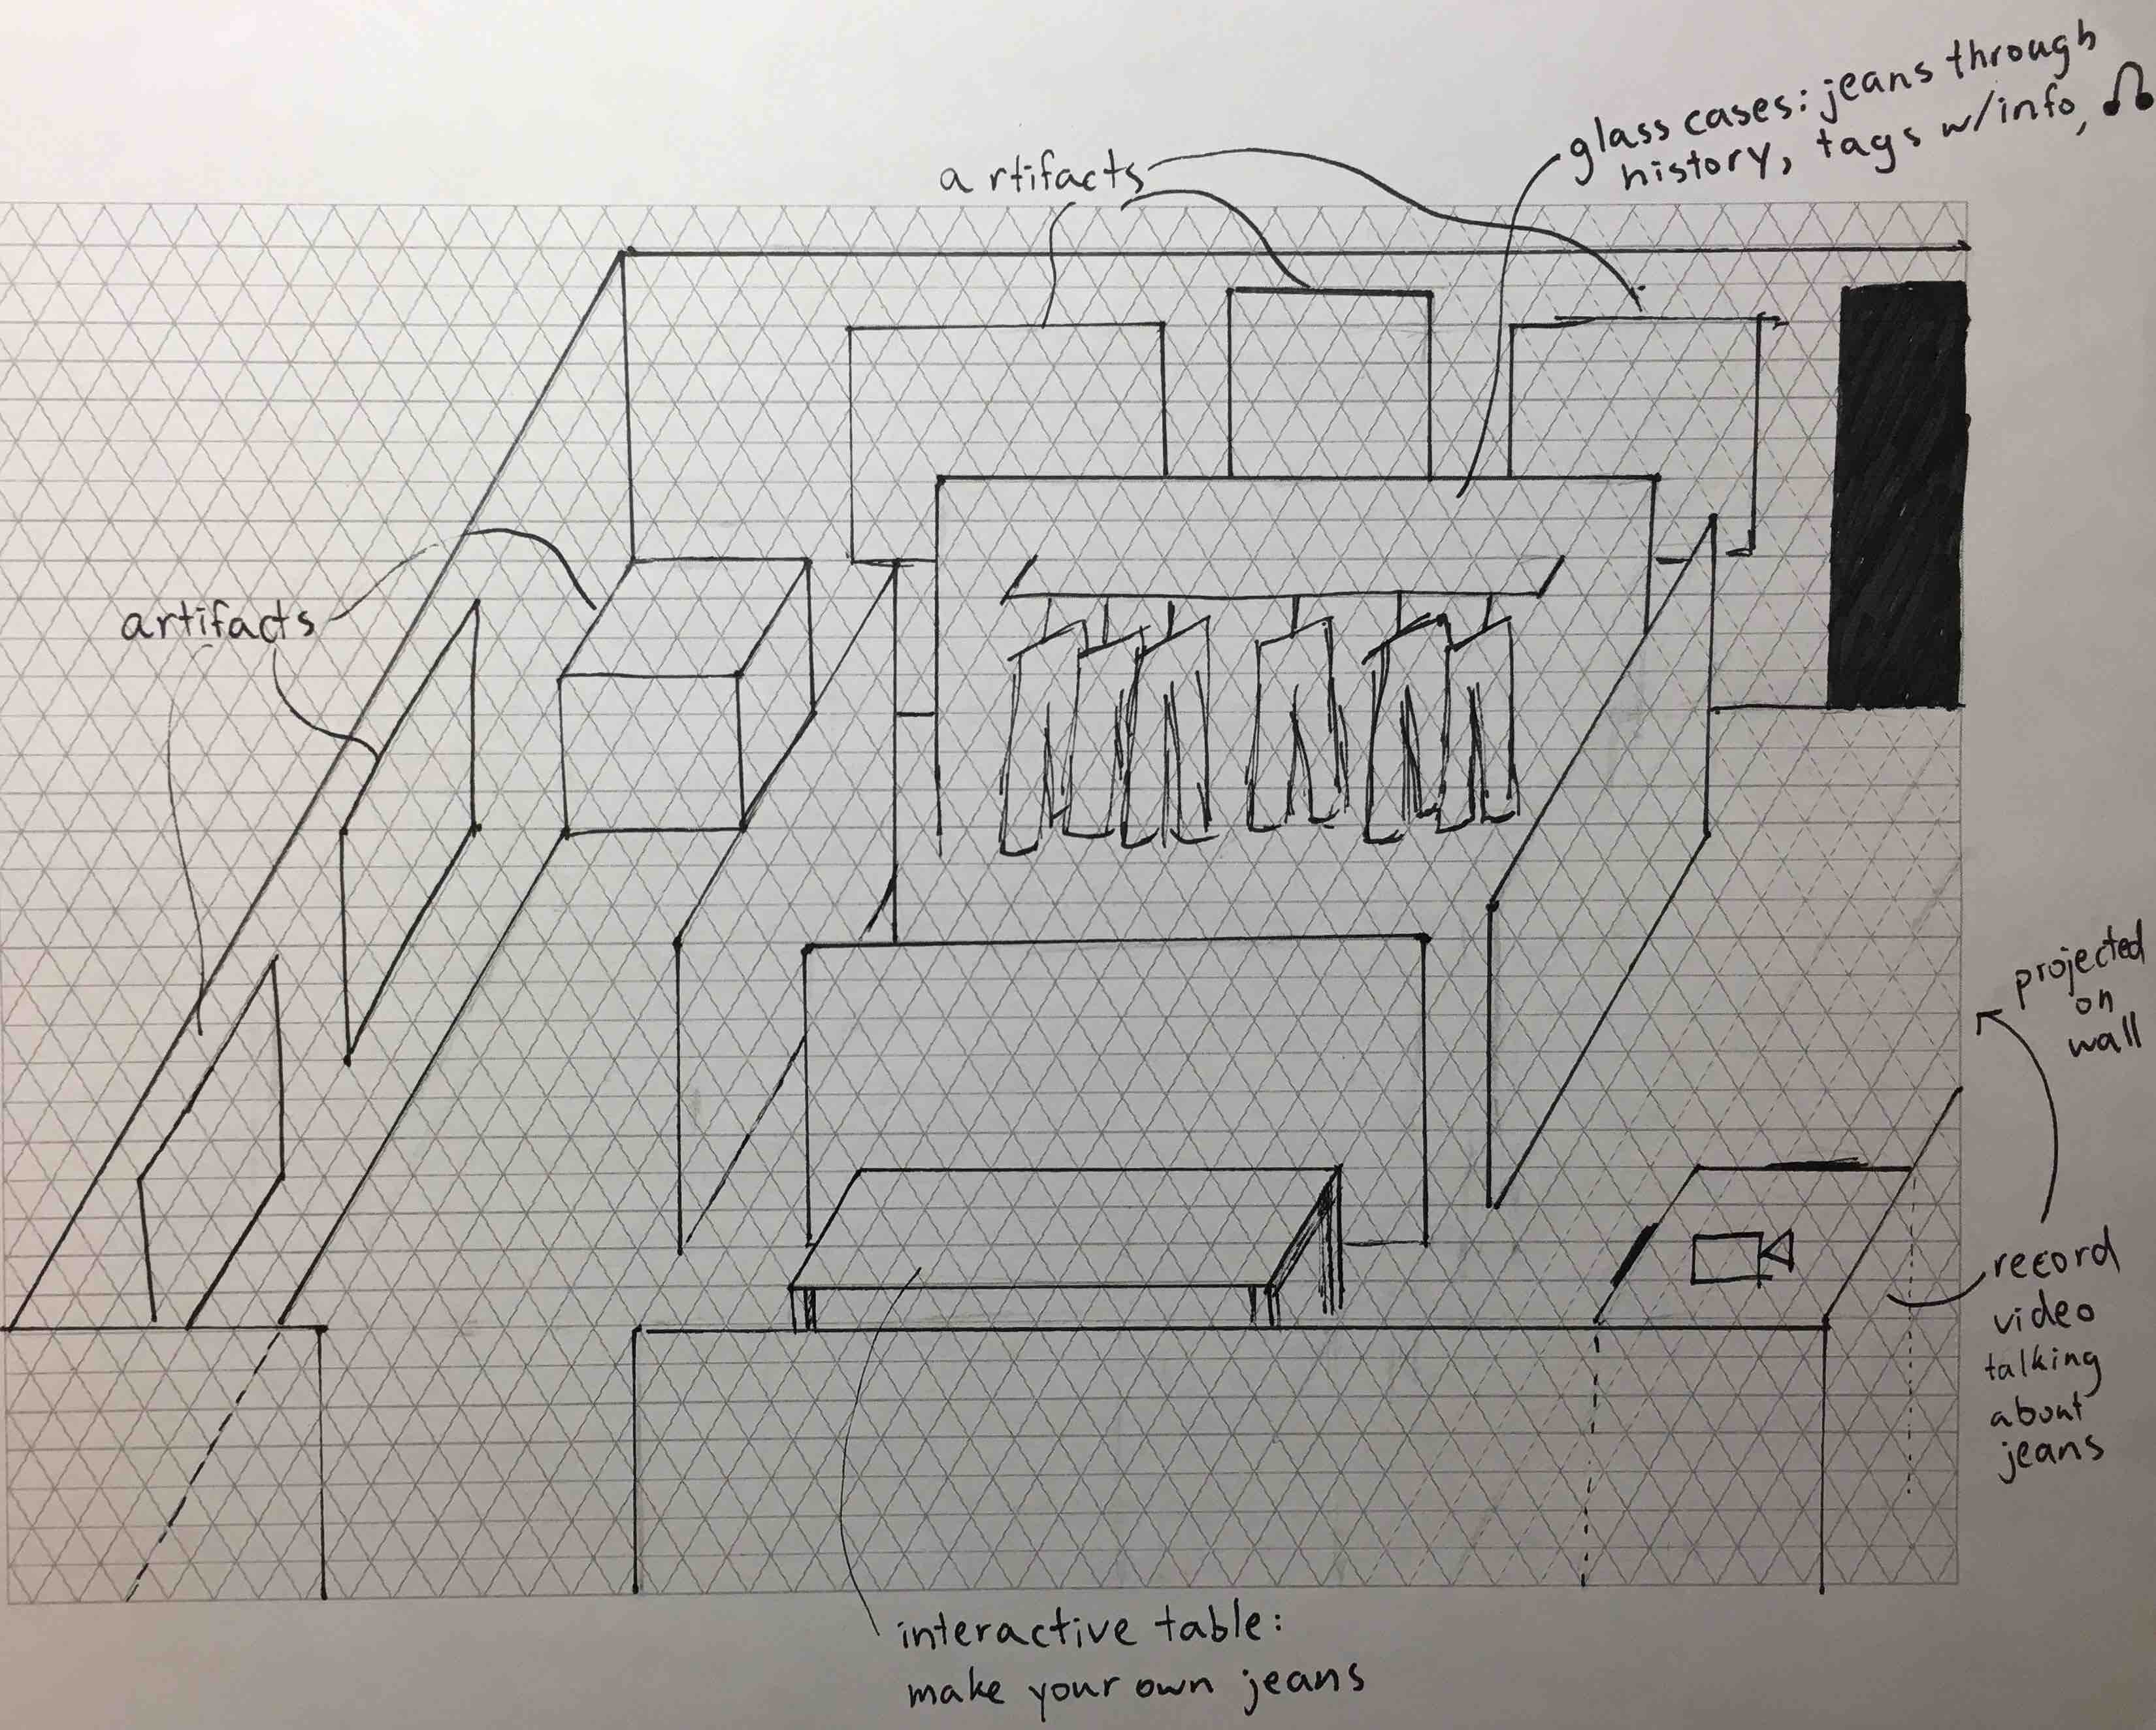 glass cases: jeans through
history, tags w/info,
artifacts
artifacts
projected
on
wall
record
video
talking
about
jeans
interactive table:
make your own jeans